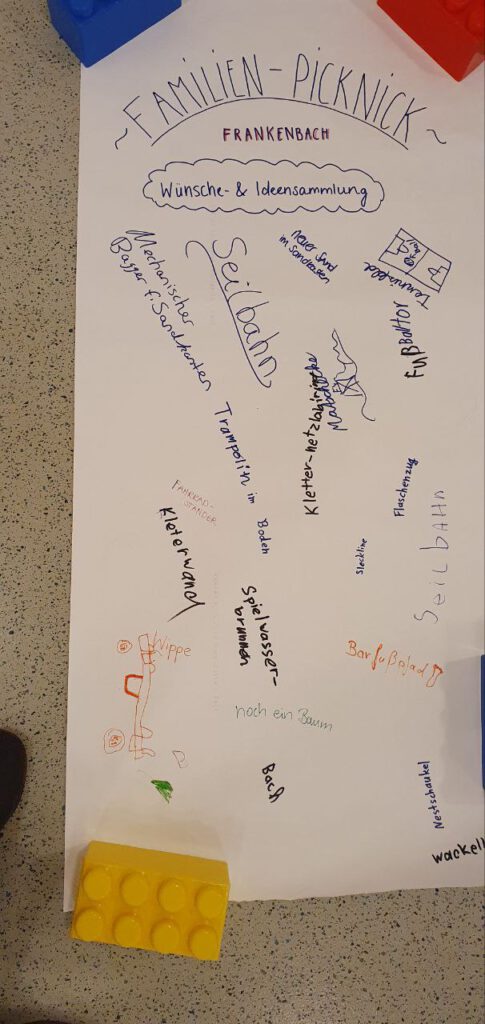 ~ FAMILIEN-PICKNICK ~
FRANKENBACH
Wünsche- & Ideensammlung
Mechanischer
Bagger f. Sandkasten
Seilbahn
neuer Sand
im Sandkasten
Tennisfeld
Fußballtor
Kletter-netzlabirint
Trampolin im Boden
FAHRRAD-
STÄNDER
Kleterwand
Flaschenzug
Slackline
SEILBAHN
Spielwasser-
brunnen
Wippe
Barfußpfad
noch ein Baum
Bach
Nestschaukel